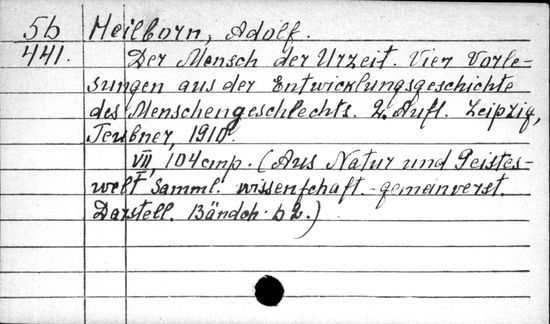 5b Heilborn, Adolf.
441. Der Mensch der Urzeit. Vier Vorle-
sungen aus der Entwicklungsgeschichte
des Menschengeschlechts. 2. Aufl. Leipzig,
Teubner, 1910.
VII, 104 стр. (Aus Natur und Geistes-
welt Samml. wissenschaft.-gemeinverst.
Darstell. Bändch. 62.)